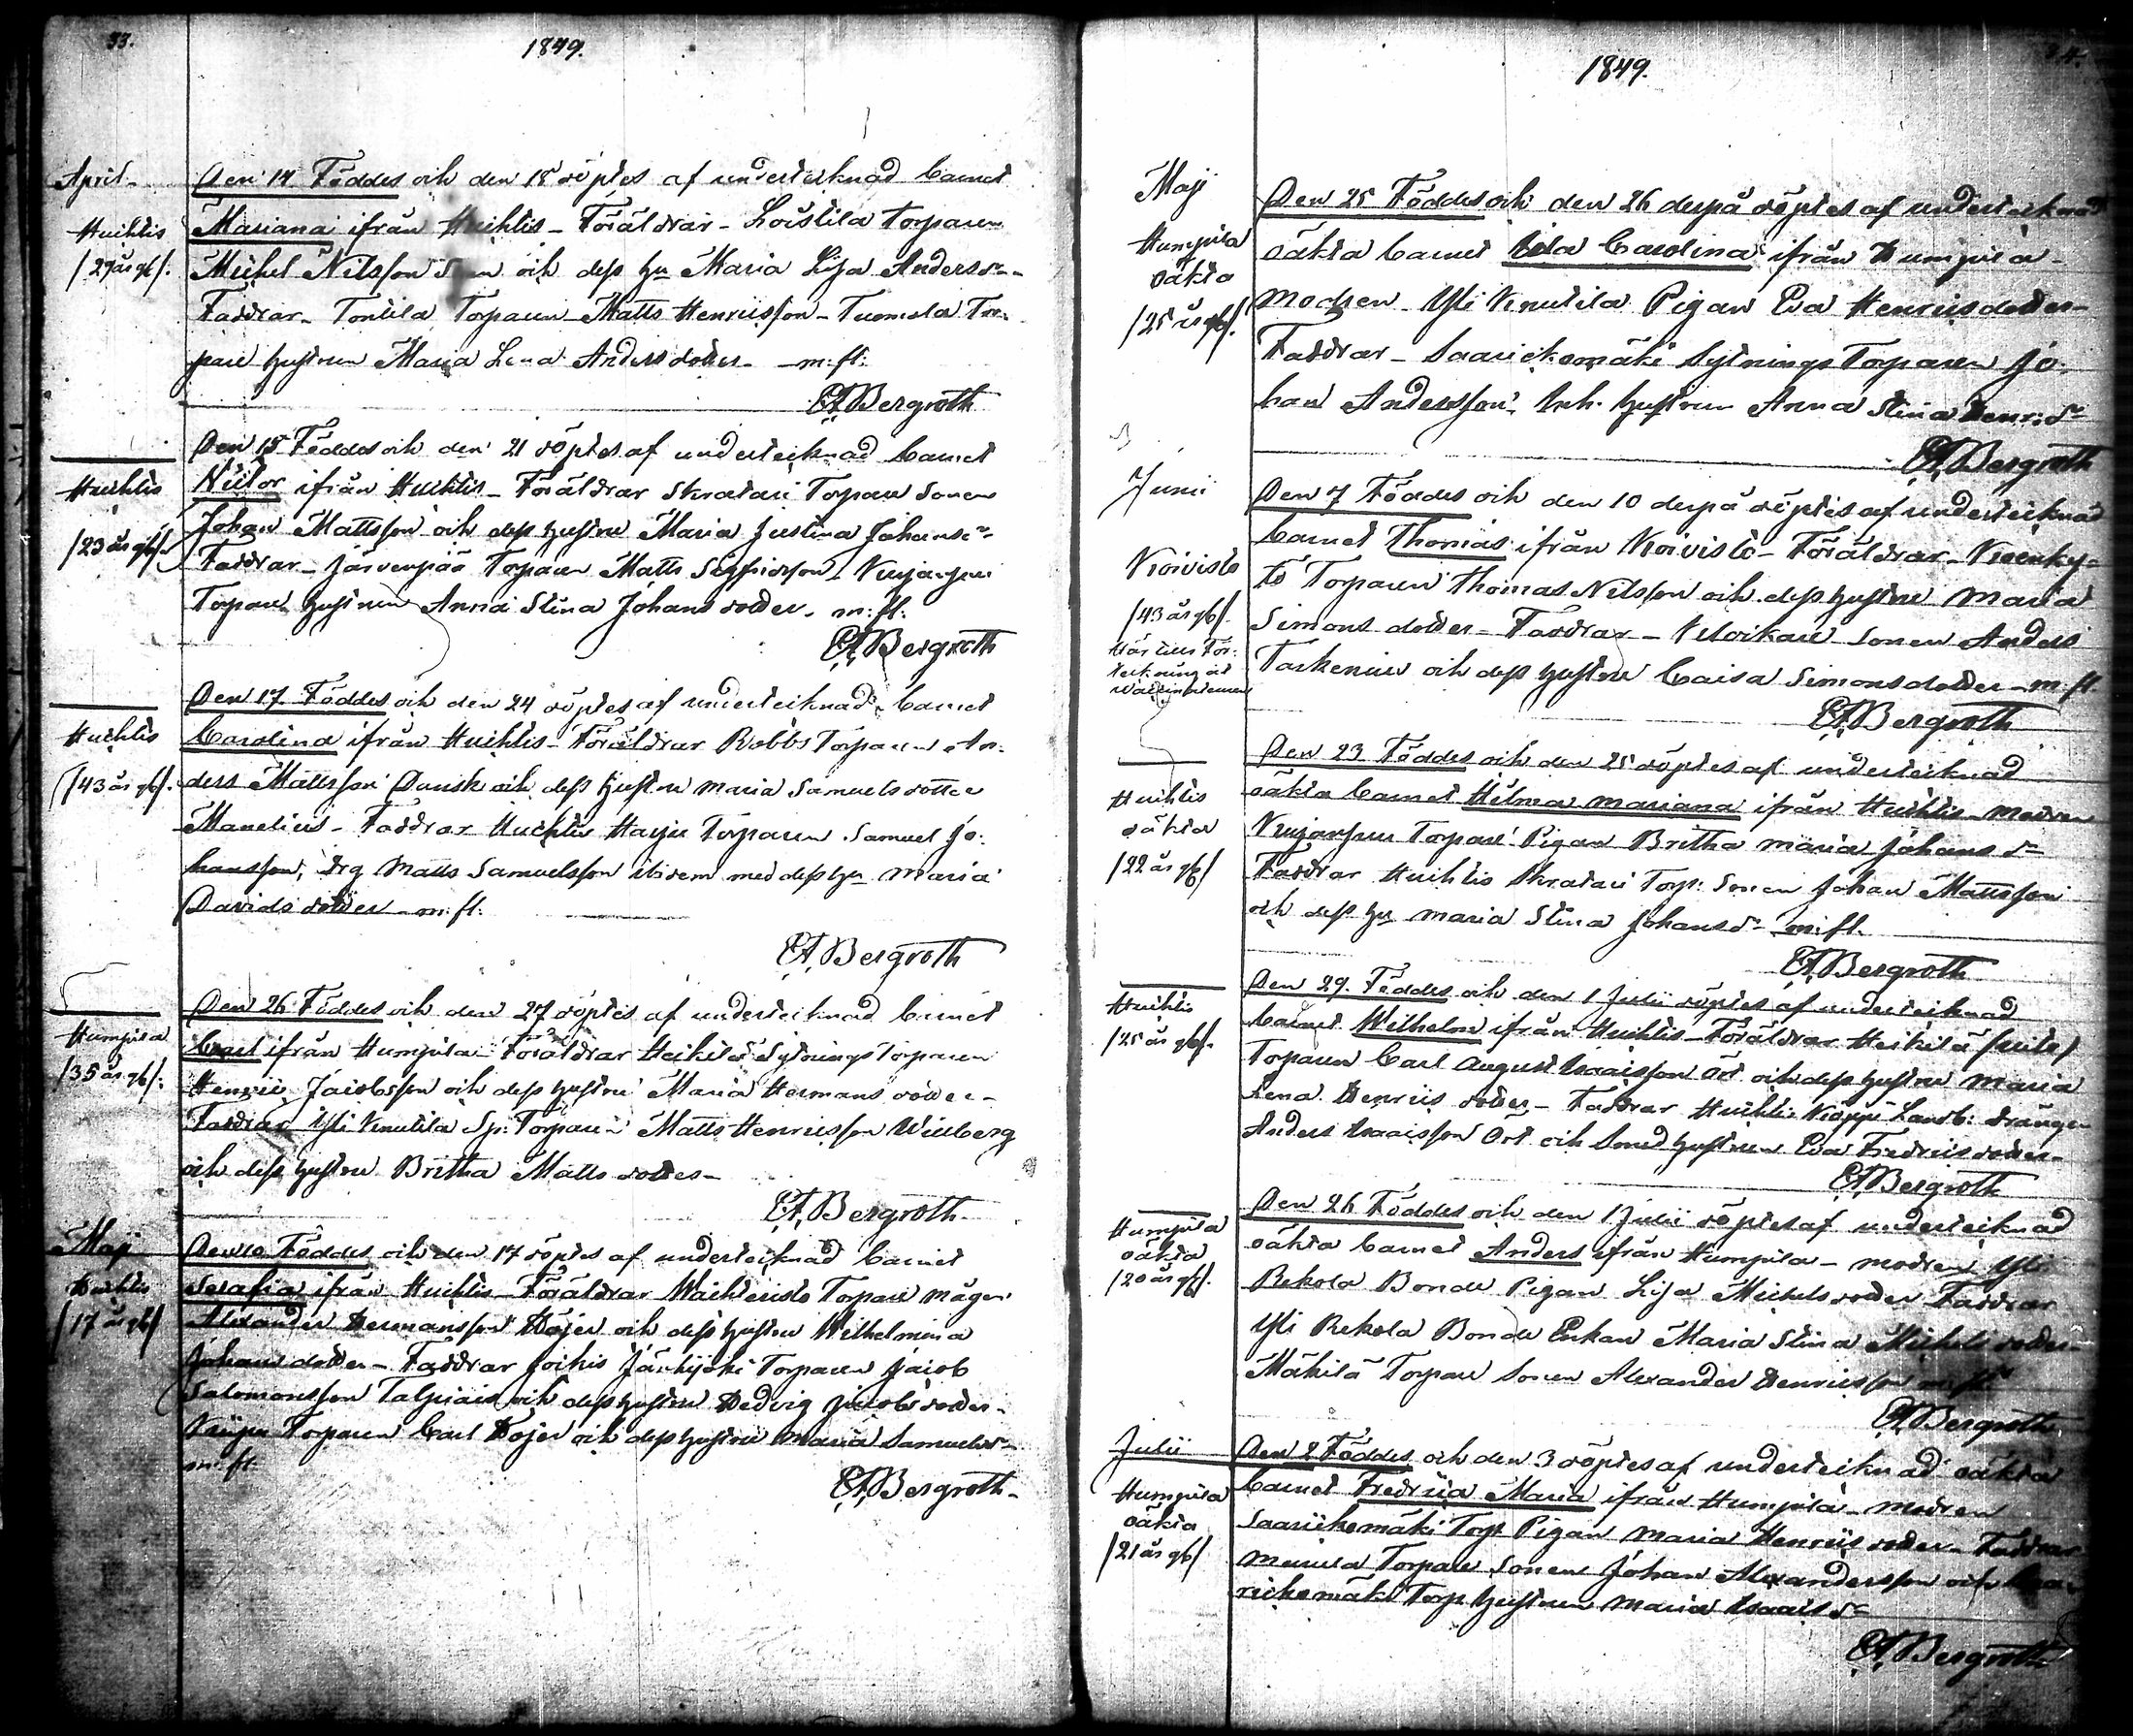 33.
1849.
April
Den 14 Föddes och den 18 döptes af undertecknad barnet
Huihtis
Mariana ifrån Huihtis - Föräldrar - Torparen
/29 år gl/.
Michel Nilsson och dess hu Maria Lisa Andersdr -
Faddrar - Tontila Torparen Matts Henricsson - Tuomola Tor-
pare hustrun Maria Lena Andersdotter - m: fl:
Bergroth
Den 18 Föddes och den 21 döptes af undertecknad barnet
Huihtis
ifrån Huihtis - Föräldrar Skratari Torpare Sonen
/23 år gl/
Johan Mattsson och dess hustru Maria Justina Johansdr
Faddrar - Järvenpää Torparen Matts Sigfridsson,
Torpare hustrun Anna Stina Johansdotter - m: fl.
Bergroth
Den 17. Föddes och den 24 döptes af undertecknad barnet
Huihtis
Carolina ifrån Huihtis - Föräldrar Robbs Torparen An-
/43 år gl/.
ders Mattsson Dansk och dess hustru Maria Samuelsdotter
Manelius - Faddrar Huihtis Harju Torparen Samuel Jo-
hansson, drg Matts Samuelsson ibidem med dess hu Maria
Davidsdotter - m: fl:
Bergroth
Den 26 Föddes och den 27 döptes af undertecknad barnet
Humpila
Carl ifrån Humpila - Föräldrar Heikilä Sytnings Torparen
/35 år gl/.
Henric Jacobsson och dess hustru Maria Hermansdotter -
Faddrar Yli Knutila Sp: Torparen Matts Henricsson Wiiberg
och dess hustru Britha Mattsdotter -
Bergroth
Maji
Den 10 Föddes och den 17 döptes af undertecknad barnet
Huihtis
Serafia ifrån Huihtis - Föräldrar Torpare mågen
/17 år gl/
Alexander Hermansson Höjer och dess hustru Wilhelmina
Johansdotter - Faddrar Jokis Jänhijoki Torparen Jacob
Salomonsson och dess hustru Hedvig Jacobsdotter -
Torparen Carl Höjer och dess hustru Maria Samuelsdr
m: fl:
Bergroth
34.
1849.
Maji
Den 25 Föddes och den 26 derpå döptes af undertecknad
Humpila
oäkta barnet Carolina ifrån Humpila -
oäkta
/25 år gl/.
Modren - Yli Knutila Pigan Eva Henricsdotter -
Faddrar - Saarickomäki Sytnings Torparen Jo-
han Andersson, Inh. hustrun Anna Stina Henr: dr
Bergroth
Junii
Den 7 Föddes och den 10 derpå döptes af undertecknad
Koivisto
barnet Thomas ifrån Koivisto - Föräldrar -
Torparen Thomas Nilsson och dess hustru Maria
/43 år gl/.
Simonsdotter - Faddrar - sonen Anders
och dess hustru Caisa Simonsdotter - m: fl.
Bergroth
Den 23 Föddes och den 25 döptes af undertecknad
Huihtis
oäkta
oäkta barnet Hilma Mariana ifrån Huihtis - Modren
/22 år gl/
Torpare Pigan Britha Maria Johansdr
Faddrar Huihtis Skratari Torp: Sonen Johan Mattsson
och dess hu Maria Stina Johansdr - m: fl.
Bergroth
Huihtis
Den 29. Föddes och den 1 Julii döptes af undertecknad
/25 år gl/.
barnet Wilhelm ifrån Huihtis - Föräldrar Heikilä
Torparen Carl August Isacsson Ört och dess hustru Maria
Lena Henricsdotter - Faddrar Huihtis Landb: drängen
Anders Isacsson Ört och Smed hustrun Eva Fredricsdotter -
Bergroth
Humpila
Den 26 Föddes och den 1 Julii döptes af undertecknad
oäkta
oäkta barnet Anders ifrån Humpila - modren Yli
/20 år gl/.
Rekola Bonde Pigan Lisa Michelsdotter Faddrar
Yli Rekola Bonde Enkan Maria Stina Michelsdotter -
Mäkilä Torpare Sonen Alexander Henricsson m: fl:
Bergroth
Julii
Den 2 Föddes och den 3 döptes af undertecknad oäkta
Humpila
barnet Fredrica Maria ifrån Humpila - modren
oäkta
Saarickomäki Torp: Pigan Maria Henricsdotter - Faddrar
/21 år gl/
Torpare Sonen Johan Alexandersson och Saa-
rickomäki Torp: hustrun Maria Isaacsdr
Bergroth